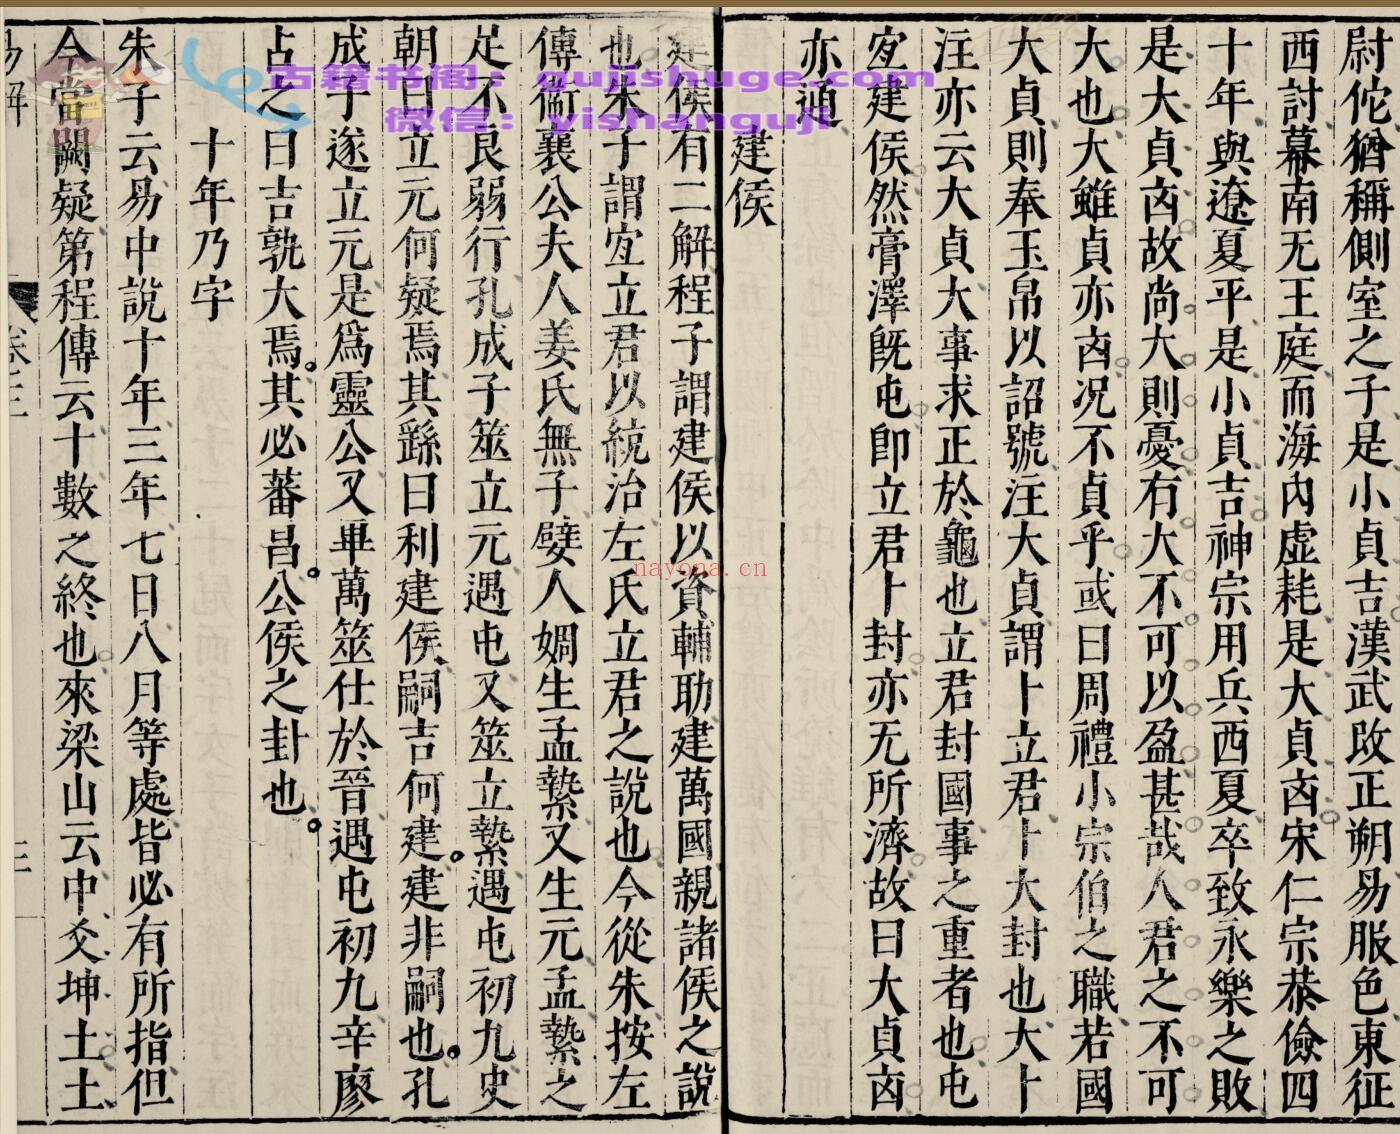 尉佗猶稱側室之子是小貞吉漢武改正朔易服色東征
西討幕南无王庭而海內虛耗是大貞㐫宋仁宗恭儉四
十年與遼夏平是小貞吉神宗用兵西夏卒致永樂之敗
是大貞㐫故尚大則憂有大不可以盈甚哉人君之不可
大也大雖貞亦㐫况不貞乎或曰周禮小宗伯之職若國
大貞則奉玉帛以詔號注大貞謂卜立君卜大封也大卜
注亦云大貞大事求正於龜也立君封國事之重者也屯
宐建侯然膏澤旣屯卽立君卜封亦无所濟故曰大貞㐫
亦通
建侯
建侯有二解程子謂建侯以資輔助建萬國親諸侯之說
也朱子謂宐立君以統治左氏立君之說也今從朱按左
傳衞襄公夫人姜氏無子嬖人婤生孟縶又生元孟縶之
足不良弱行孔成子筮立元遇屯又筮立縶遇屯初九史
朝曰立元何疑焉其繇曰利建侯嗣吉何建建非嗣也孔
成子遂立元是爲靈公又畢萬筮仕於晉遇屯初九辛廖
占之曰吉孰大焉其必蕃昌公侯之封也
十年乃字
朱子云易中說十年三年七日八月等處皆必有所指但
今當闕疑第程傳云十數之終也來梁山云中爻坤土土
易解
卷三
三
古籍书阁：gujishuge.com
微信：yishanguji
nayona.cn